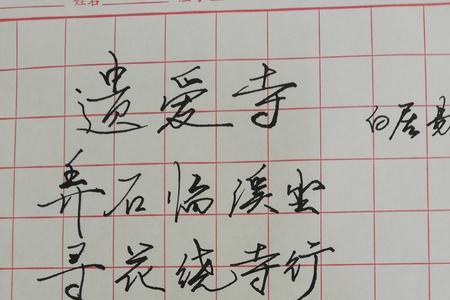 姓名
遗爱寺 白居易
弄石临溪坐
寻花绕寺行